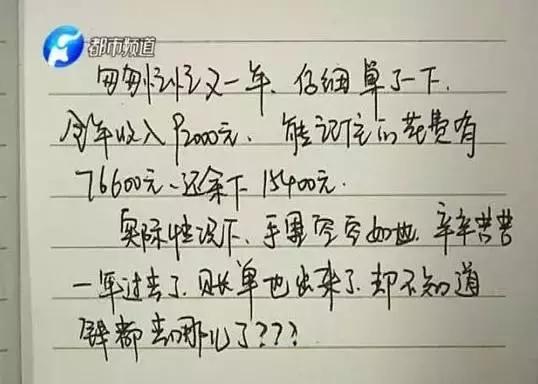 都市频道
匆匆忙忙又一年、仔细算了一下、
全年收入92000元、能记住的花费有
76600元、还余下15400元.
实际情况下、手里空空如也、辛辛苦苦
一年过去了、账单也出来了、却不知道
钱都去哪儿了???